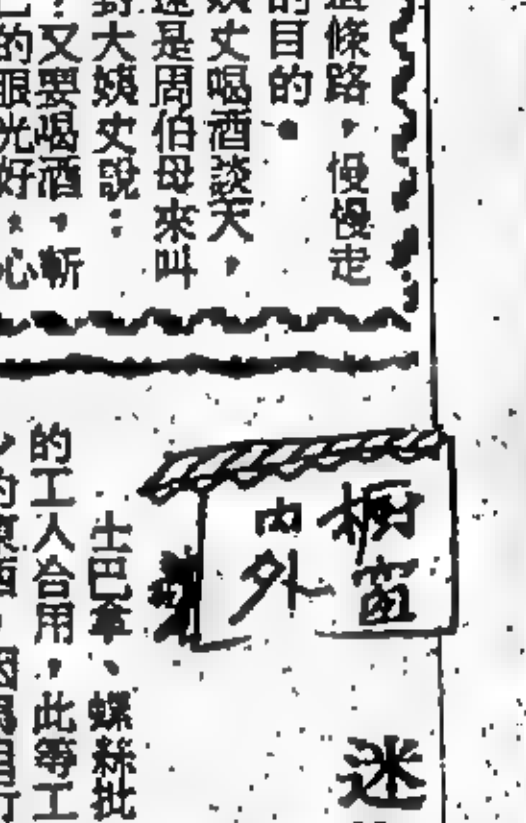 條路，慢慢走
的目的。
丈喝酒談天，
是周伯母來叫
對大姨丈說：
？又要喝酒，斬
的眼光好，心
橱窗
内外
迷
士巴拿、螺絲批
的工人合用，此等工